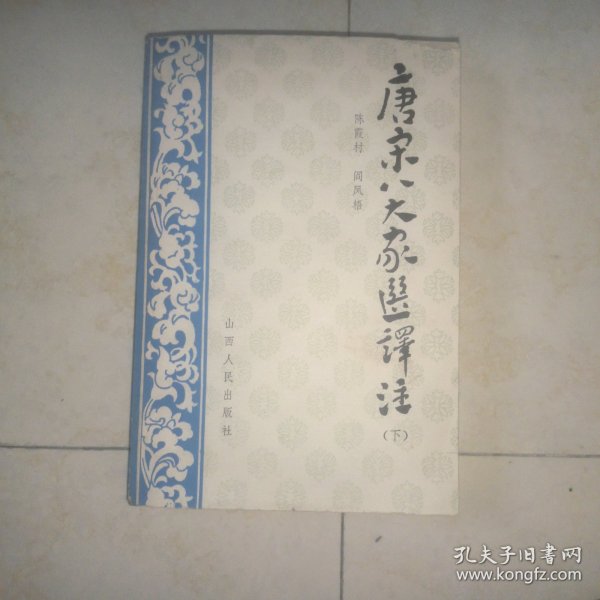 唐宋八大家選譯注
(下)
陈霞村 阎凤梧
山西人民出版社
孔夫子旧书网
www.kongfz.com